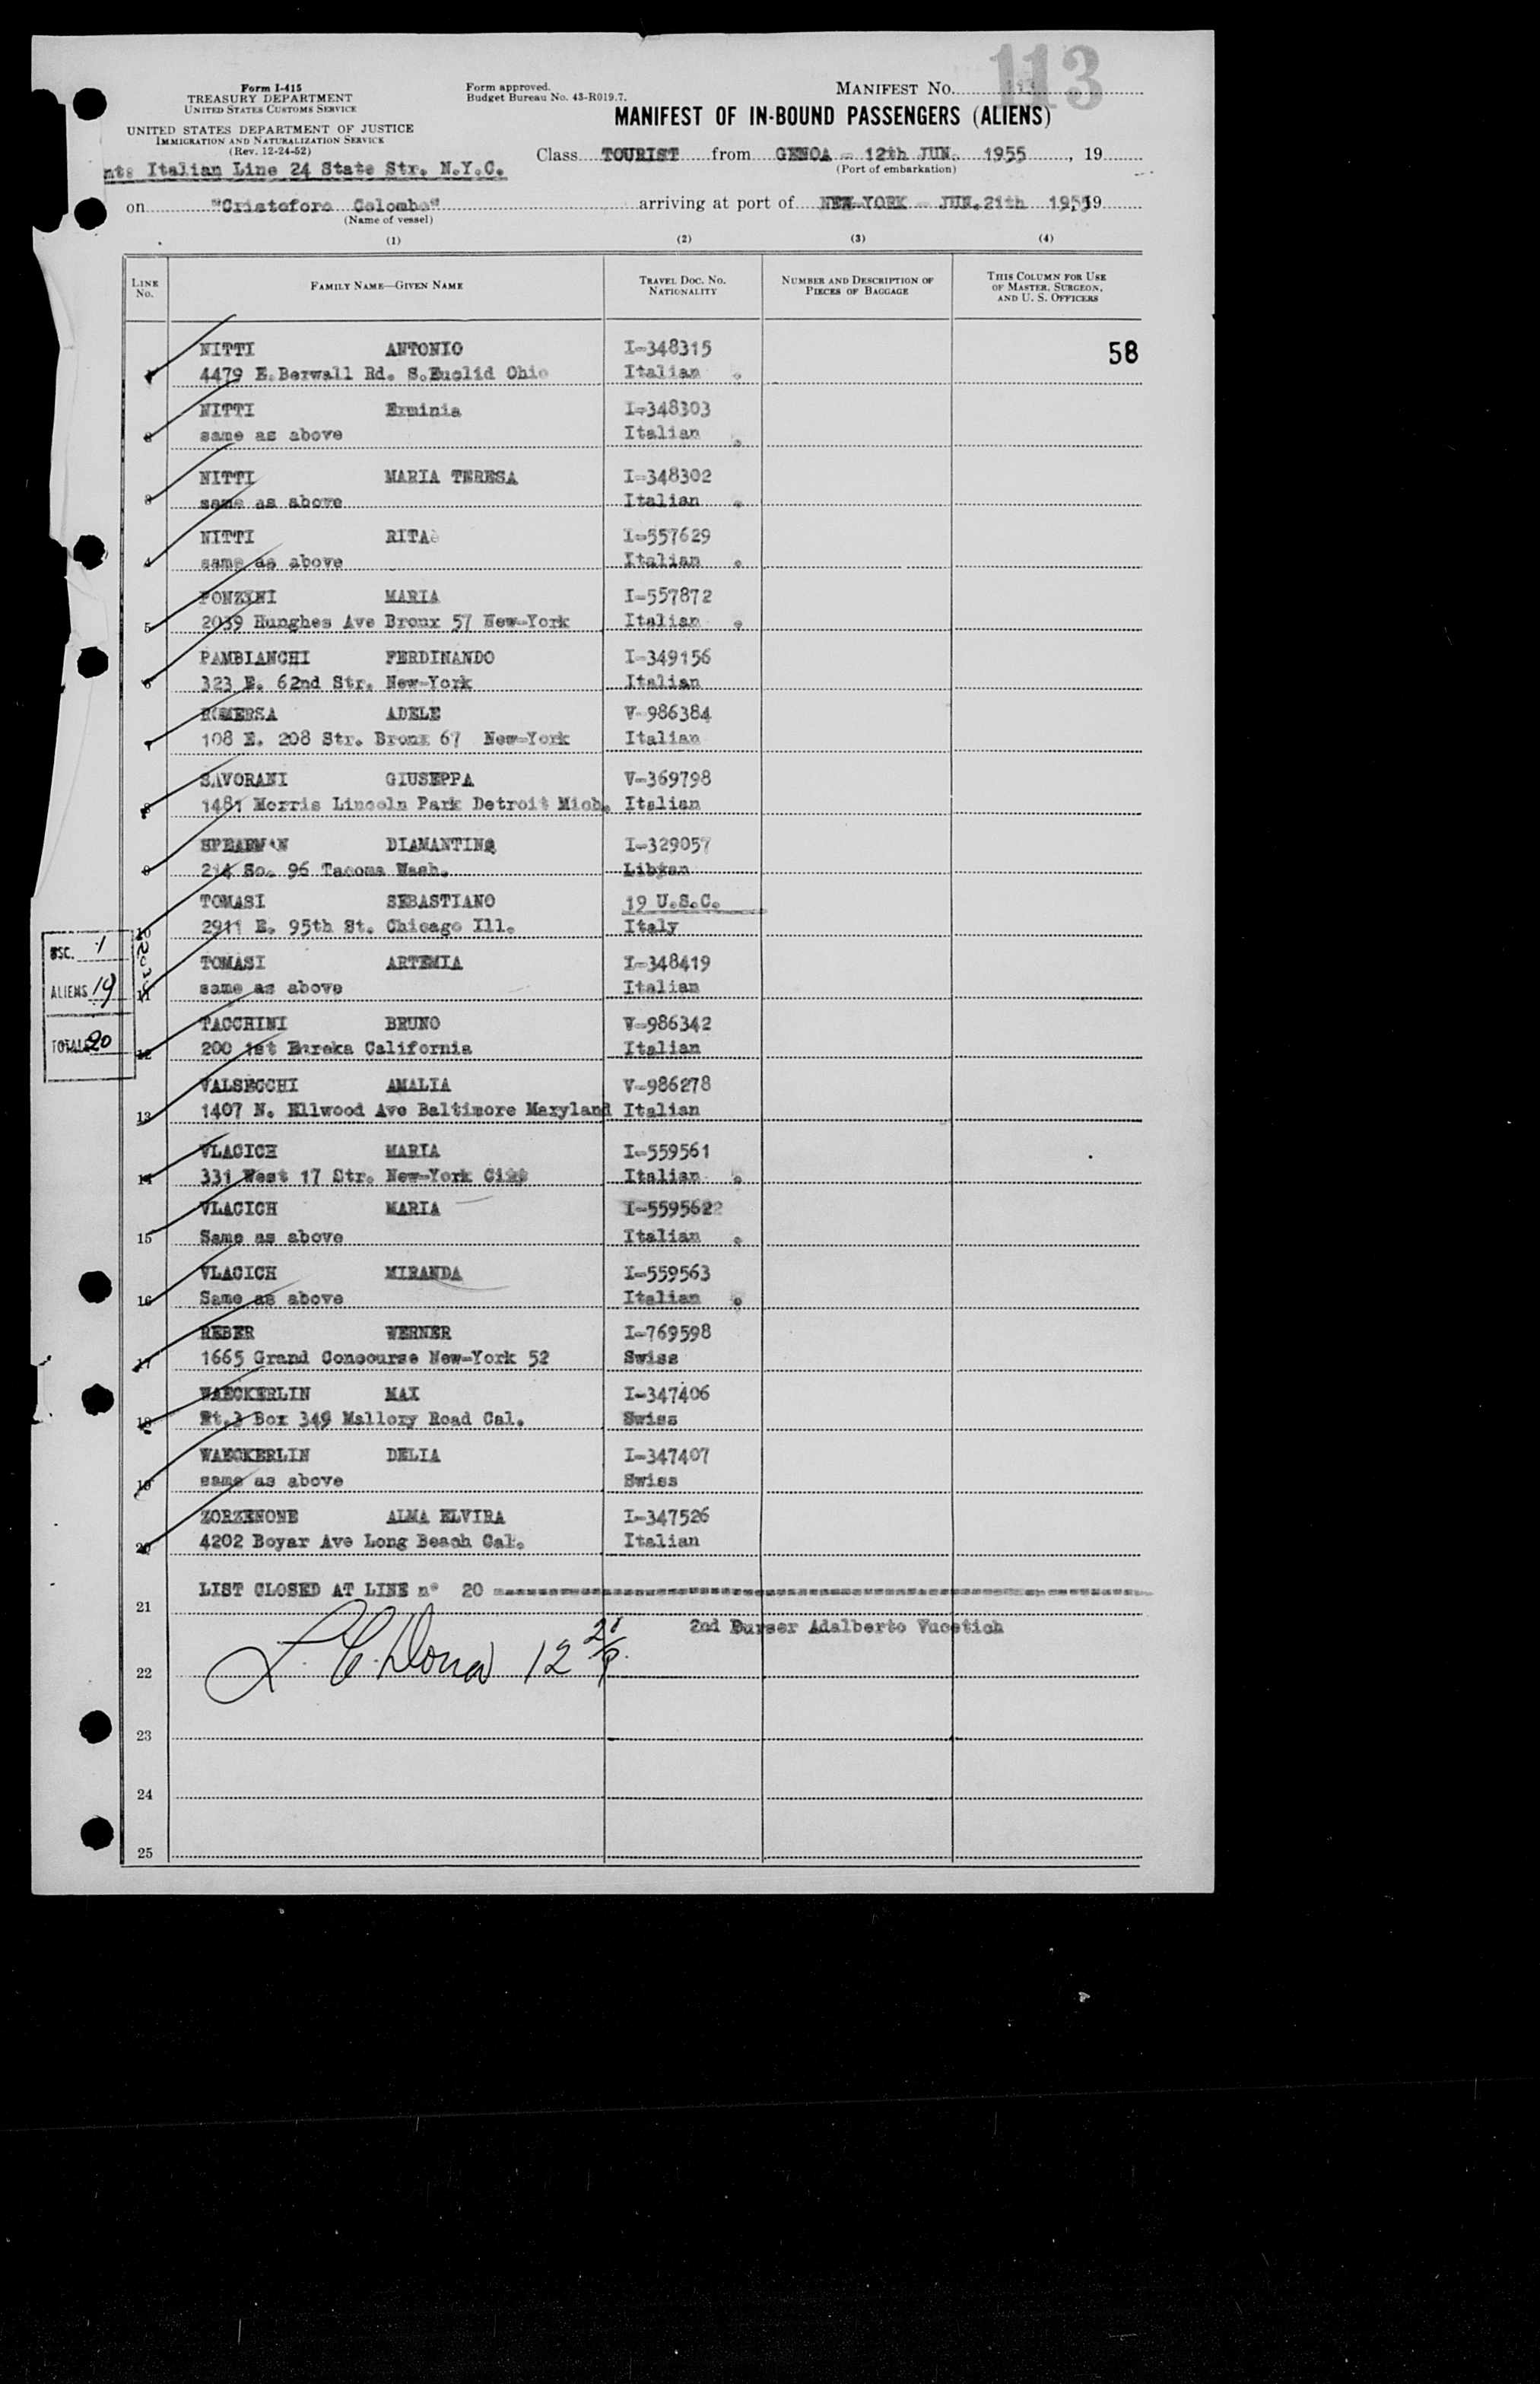 113
Form I-415
TREASURY DEPARTMENT
UNITED STATES CUSTOMS SERVICE
UNITED STATES DEPARTMENT OF JUSTICE
IMMIGRATION AND NATURALIZATION SERVICE
(Rev. 12-24-52)
Form approved.
Budget Bureau No. 43-R019.7.
MANIFEST No.
MANIFEST OF IN-BOUND PASSENGERS (ALIENS)
nts Italian Line 24 State Str. N.Y.C.
Class TOURIST from GENOA - 12th JUN. 1955, 19
(Port of embarkation)
on "Cristoforo Colombo" arriving at port of NEW-YORK - JUN.21th 1955, 19
(Name of vessel)
(1) (2) (3) (4)
LINE No. FAMILY NAME—GIVEN NAME TRAVEL DOC. No. NATIONALITY NUMBER AND DESCRIPTION OF PIECES OF BAGGAGE THIS COLUMN FOR USE OF MASTER, SURGEON, AND U. S. OFFICERS
NITTI ANTONIO I-348315 58
1 4479 E.Berwall Rd. S.Euclid Ohio Italian
NITTI Erminia I-348303
2 same as above Italian
NITTI MARIA TERESA I-348302
3 same as above Italian
NITTI RITA I-557629
4 same as above Italian
PONZINI MARIA I-557872
5 2039 Hunghes Ave Bronx 57 New-York Italian
PAMBIANCHI FERDINANDO I-349156
6 323 E. 62nd Str. New-York Italian
ROMERSA ADELE V-986384
7 108 E. 208 Str. Bronx 67 New-York Italian
SAVORANI GIUSEPPA V-369798
8 1481 Morris Lincoln Park Detroit Mich. Italian
SPEARMAN DIAMANTINA I-329057
9 214 So. 96 Tacoma Wash. Libyan
TOMASI SEBASTIANO 19 U.S.C.
10 2911 E. 95th St. Chicago Ill. Italy
TOMASI ARTEMIA I-348419
11 same as above Italian
TACCHINI BRUNO V-986342
12 200 1st Eureka California Italian
VALSECCHI AMALIA V-986278
13 1407 N. Ellwood Ave Baltimore Maryland Italian
VLACICH MARIA I-559561
14 331 West 17 Str. New-York City Italian
VLACICH MARIA I-559562
15 Same as above Italian
VLACICH MIRANDA I-559563
16 Same as above Italian
REBER WERNER I-769598
17 1665 Grand Concourse New-York 52 Swiss
WAECKERLIN MAX I-347406
18 Rt.3 Box 349 Mallory Road Cal. Swiss
WAECKERLIN DELIA I-347407
19 same as above Swiss
ZORZENONE ALMA ELVIRA I-347526
20 4202 Boyar Ave Long Beach Cal. Italian
USC. 1
ALIENS 19
TOTAL 20
LIST CLOSED AT LINE n° 20
21
2nd Purser Adalberto Vucetich
22
23
24
25